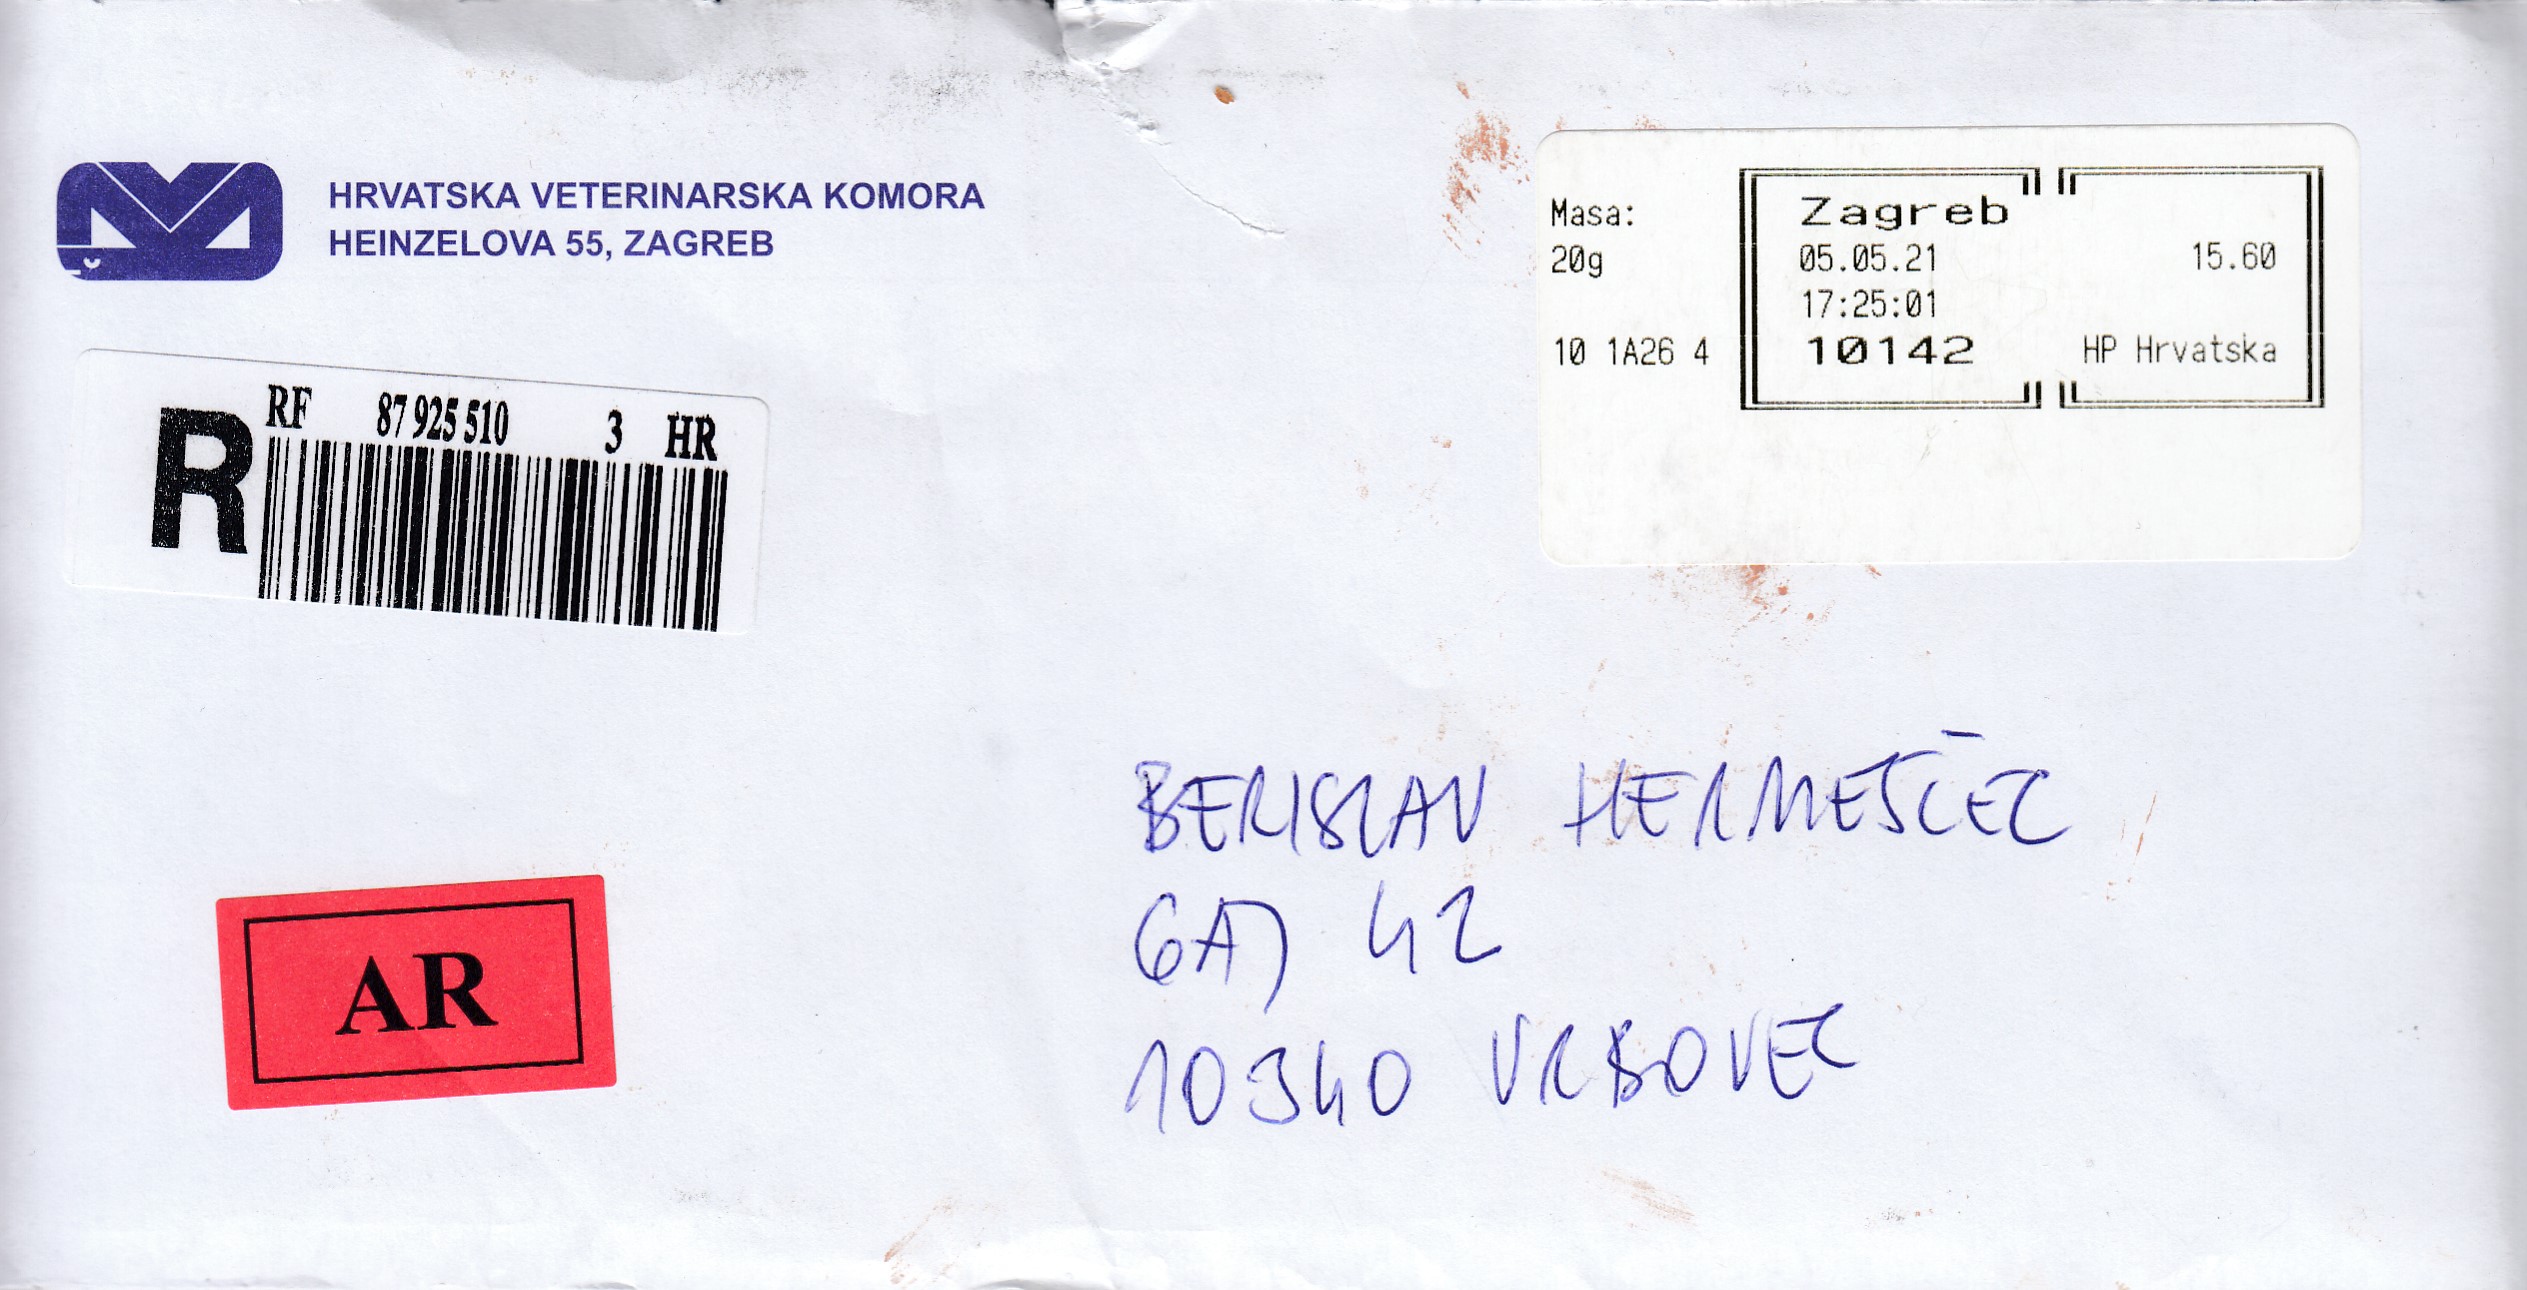 HRVATSKA VETERINARSKA KOMORA
HEINZELOVA 55, ZAGREB
Masa:
20g
10 1A26 4
Zagreb
05.05.21
17:25:01
10142
15.60
HP Hrvatska
R
RF 87 925 510 3 HR
AR
BERISLAV HERMEŠČEC
GAJ 42
10340 VRBOVEC